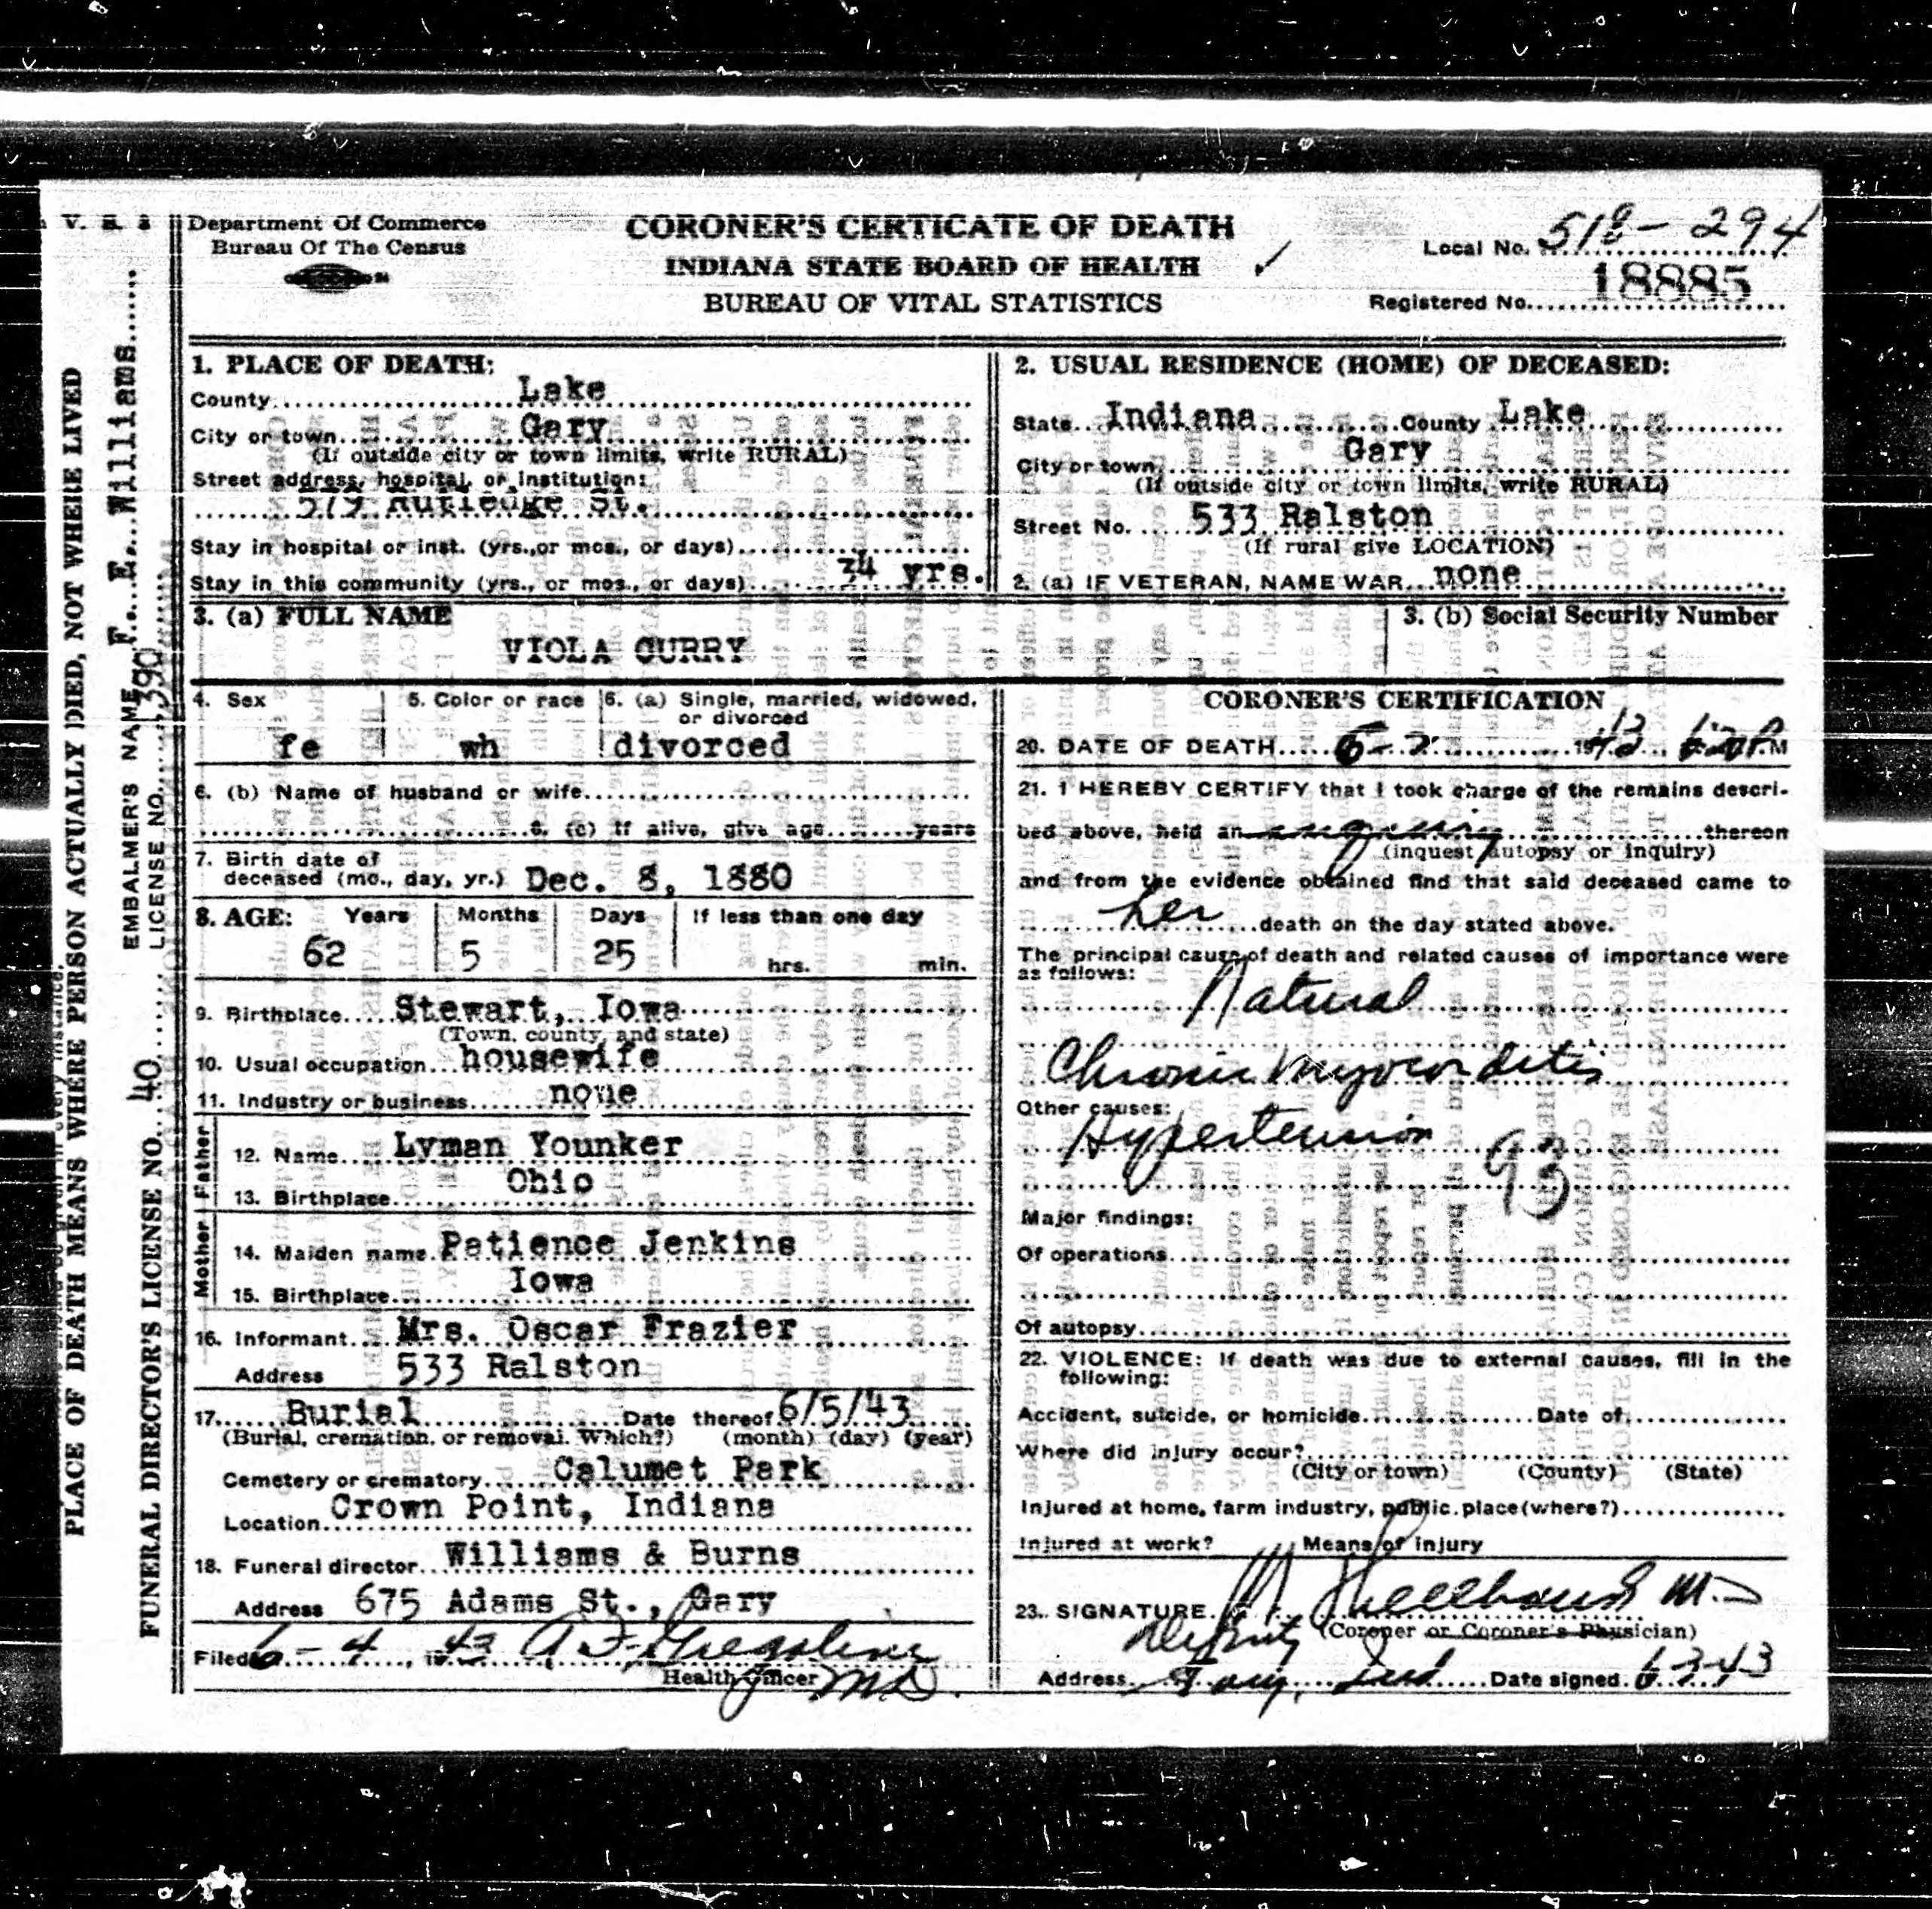 V. S. 3
Department Of Commerce
Bureau Of The Census
CORONER'S CERTICATE OF DEATH
INDIANA STATE BOARD OF HEALTH ✓
BUREAU OF VITAL STATISTICS
Local No. 518-294
Registered No. 18885
PLACE OF DEATH MEANS WHERE PERSON ACTUALLY DIED, NOT WHERE LIVED
EMBALMER'S NAME F. E. Williams
LICENSE NO. 1390
FUNERAL DIRECTOR'S LICENSE NO. 40
1. PLACE OF DEATH:
County Lake
City or town Gary
(If outside city or town limits, write RURAL)
Street address, hospital, or institution:
Rutledge St.
Stay in hospital or inst. (yrs., or mos., or days)
Stay in this community (yrs., or mos., or days) 34 yrs.
2. USUAL RESIDENCE (HOME) OF DECEASED:
State Indiana County Lake
City or town Gary
(If outside city or town limits, write RURAL)
Street No. 533 Ralston
(If rural give LOCATION)
2. (a) IF VETERAN, NAME WAR none
3. (a) FULL NAME
VIOLA CURRY
3. (b) Social Security Number
4. Sex
fe
5. Color or race
wh
6. (a) Single, married, widowed, or divorced
divorced
6. (b) Name of husband or wife
6. (c) If alive, give age years
7. Birth date of
deceased (mo., day, yr.) Dec. 8, 1880
8. AGE: Years Months Days If less than one day
62 5 25 hrs. min.
9. Birthplace Stewart, Iowa
(Town, county, and state)
10. Usual occupation housewife
11. Industry or business none
Father
12. Name Lyman Younker
13. Birthplace Ohio
Mother
14. Maiden name Patience Jenkins
15. Birthplace Iowa
16. Informant Mrs. Oscar Frazier
Address 533 Ralston
17. Burial Date thereof 6/5/43
(Burial, cremation, or removal. Which?) (month) (day) (year)
Cemetery or crematory Calumet Park
Location Crown Point, Indiana
18. Funeral director Williams & Burns
Address 675 Adams St., Gary
Filed 6-4, 1943
Health Officer M.D.
CORONER'S CERTIFICATION
20. DATE OF DEATH 6-2 1943 M
21. I HEREBY CERTIFY that I took charge of the remains descri-
bed above, held an inquiry thereon
(inquest autopsy or inquiry)
and from the evidence obtained find that said deceased came to
her death on the day stated above.
The principal cause of death and related causes of importance were
as follows:
Natural
Chronic myocarditis
Other causes:
Hypertension
93
Major findings:
Of operations
Of autopsy
22. VIOLENCE: If death was due to external causes, fill in the
following:
Accident, suicide, or homicide Date of
Where did injury occur?
(City or town) (County) (State)
Injured at home, farm industry, public place (where?)
Injured at work? Means of injury
23. SIGNATURE M.D.
Deputy (Coroner or Coroner's Physician)
Address Gary, Ind Date signed 6-3-43